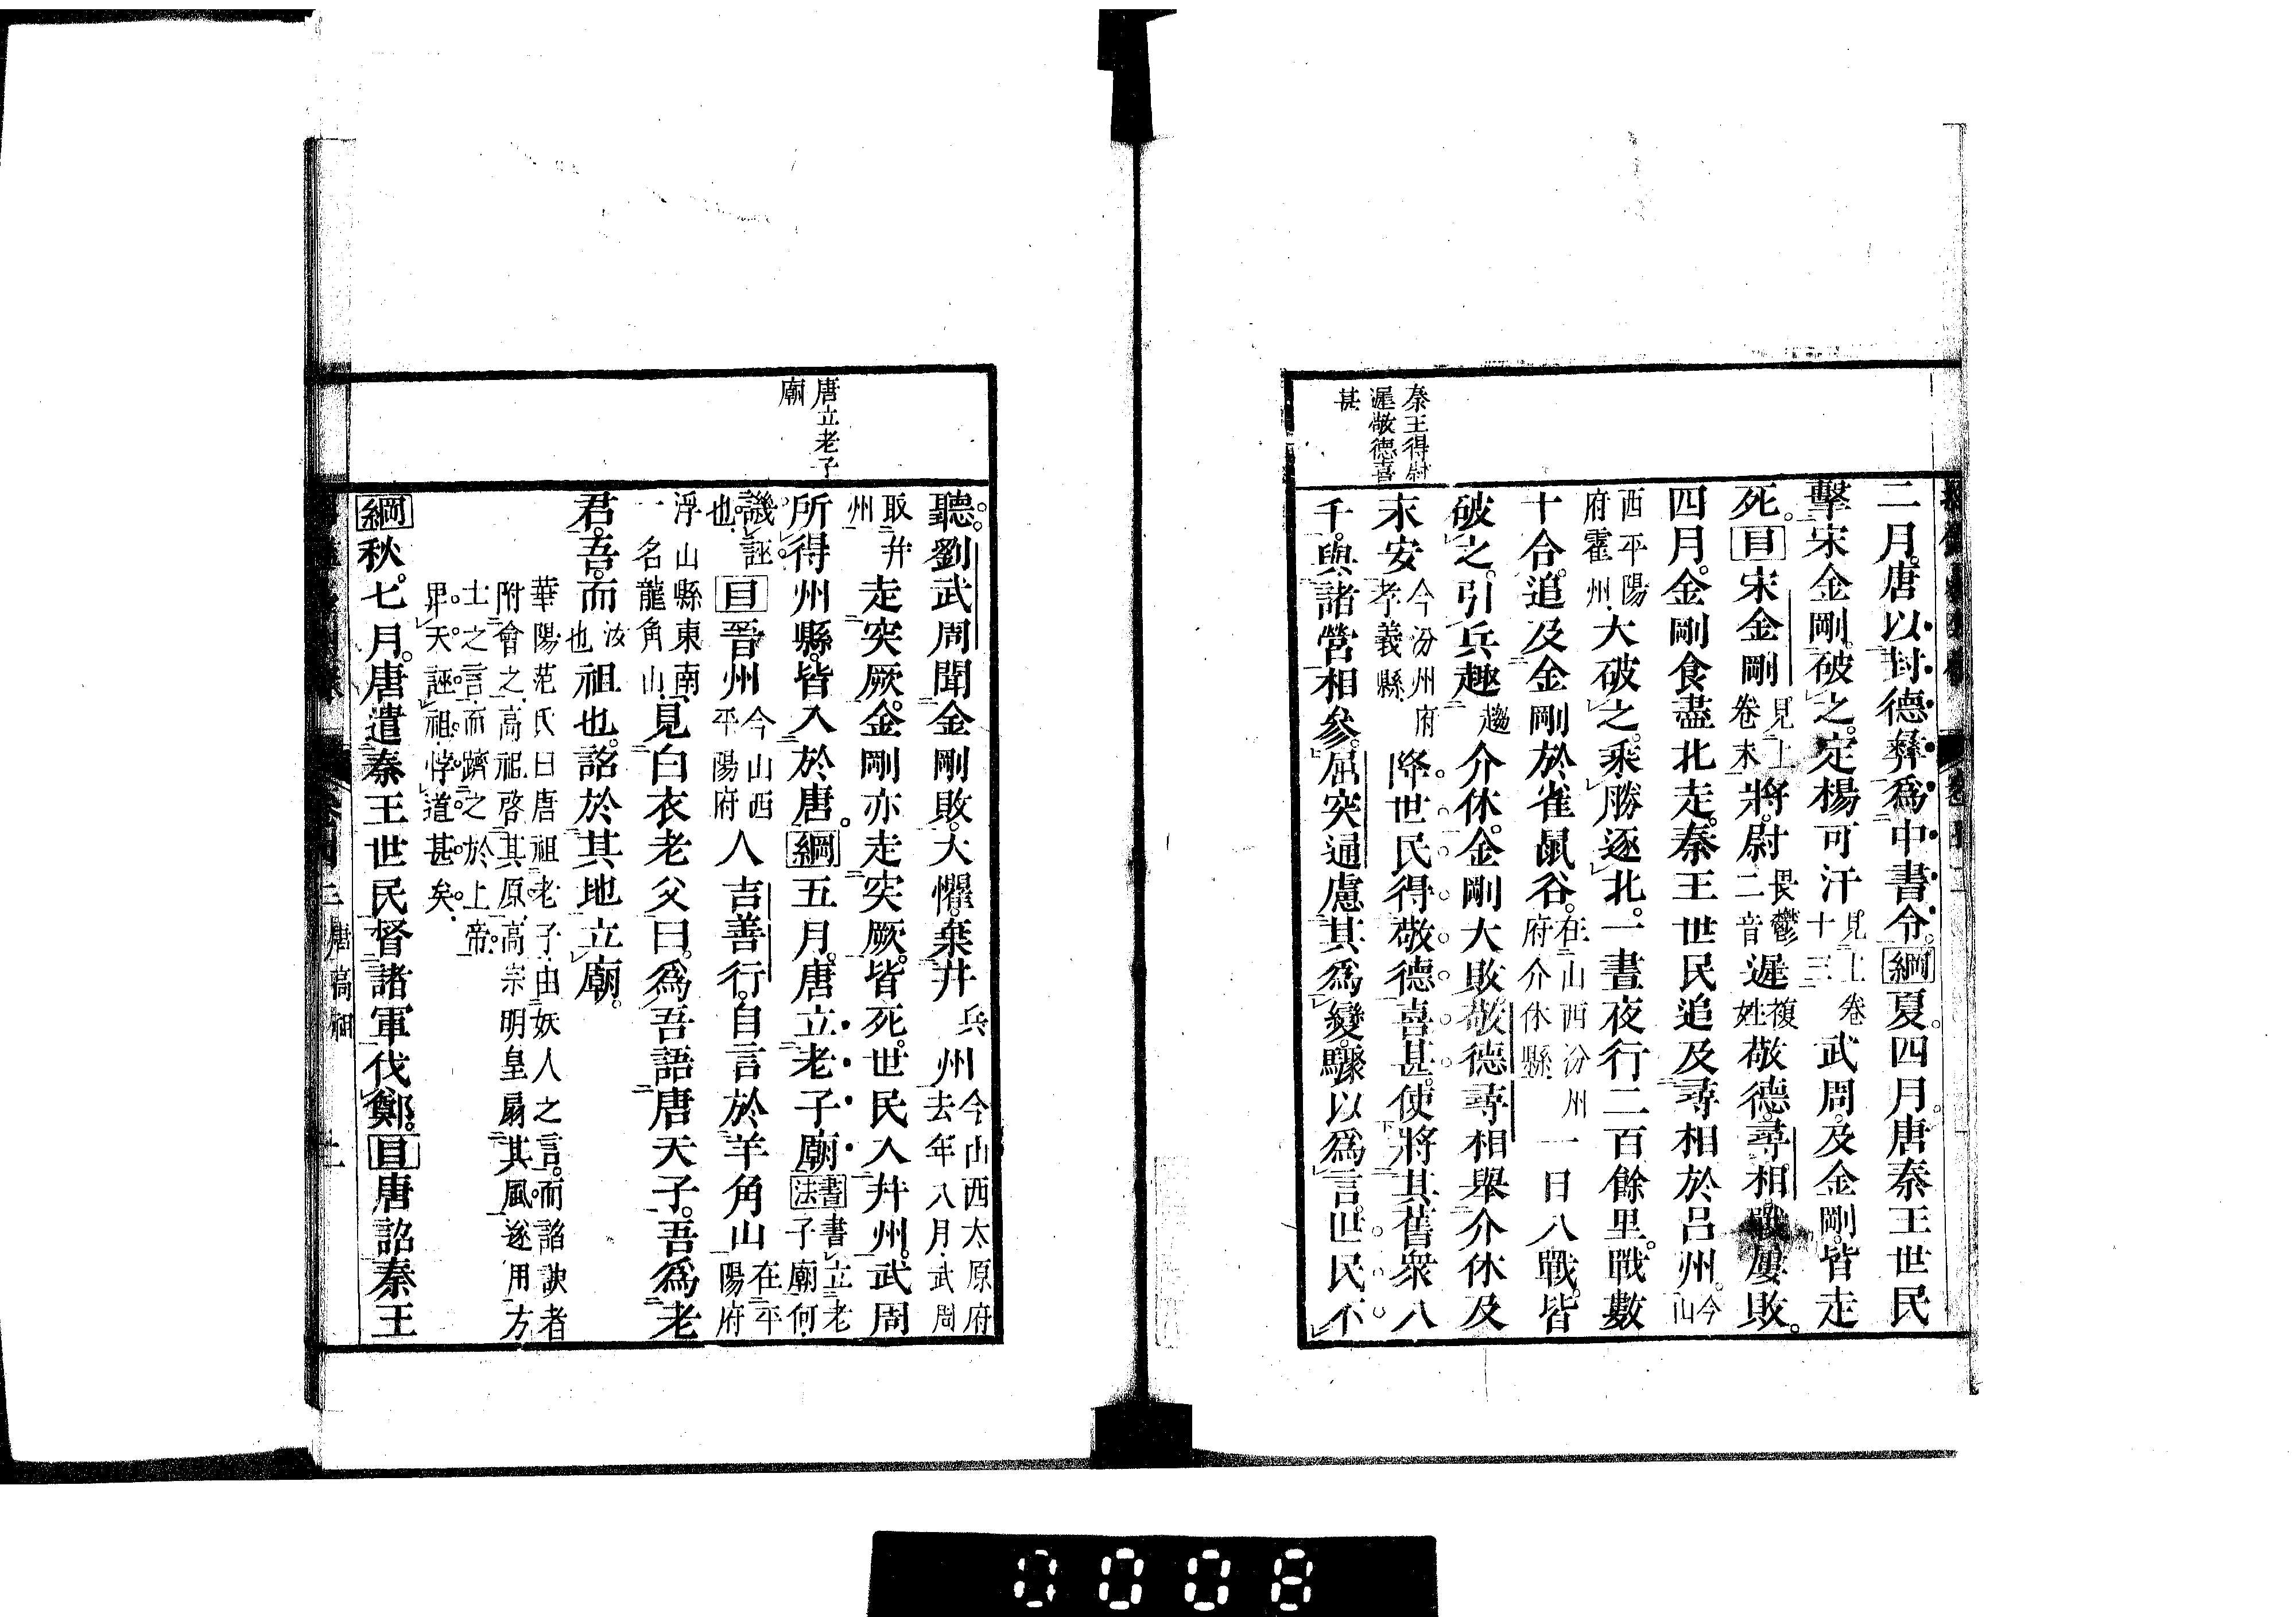 秦王得尉
遲敬德喜
甚
二月。唐以封德彝爲中書令。綱夏。四月。唐秦王世民
擊宋金剛。破之。定楊可汗見上卷十三武周。及金剛。皆走
死。目宋金剛見上卷末將。尉畏鬱二音遲複姓敬德。尋相。戰屢敗。
四月。金剛食盡北走。秦王世民追及尋相於呂州。今山
西平陽府霍州大破之。乘勝逐北。一晝夜行二百餘里。戰數
十合。追及金剛於雀鼠谷。在山西汾州府介休縣一日八戰。皆
破之。引兵趣趨介休。金剛大敗。敬德尋相舉介休及
末安今汾州府孝義縣降。世民得敬德喜甚。使將其舊衆八
千。與諸營相參。屈突通慮其爲變。驟以爲言。世民不
唐立老子
廟
聽。劉武周聞金剛敗。大懼。棄幷兵州今山西太原府去年八月武周
取幷州走突厥。金剛亦走突厥。皆死。世民入幷州。武周
所得州縣。皆入於唐。綱五月。唐立老子廟書法書立老子廟何
譏誣也。目晉州今山西平陽府人吉善行。自言於羊角山在平陽府
浮山縣東南一名龍角山見白衣老父曰。爲吾語唐天子。吾爲老
君。吾。而汝也祖也。詔於其地立廟。
華陽范氏曰唐祖老子由妖人之言。而諂諛者
附會之高祖啓其原高宗明皇扇其風。遂用方
士之言而躋之於上帝。
卑天誣祖悖道甚矣。
綱秋。七月。唐遣秦王世民督諸軍伐鄭。目唐詔秦王
唐高祖
0008